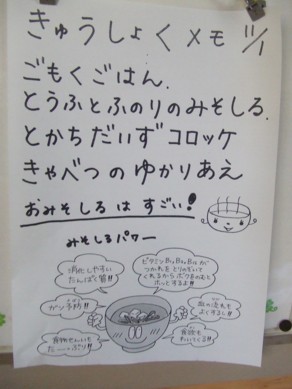 きゅうしょくメモ 11/1
ごもくごはん.
とうふとふのりのみそしる.
とかちだいずコロッケ
きゃべつのゆかりあえ
おみそしるはすごい!
みそしるパワー
消化しやすい
たんぱく質!!
ビタミン
つかれをとりのぞいて
くれるから
ホッとするよ!!
ガン予防!!
血の流れも
よくするし!!
食物せんいも
たーっぷり!!